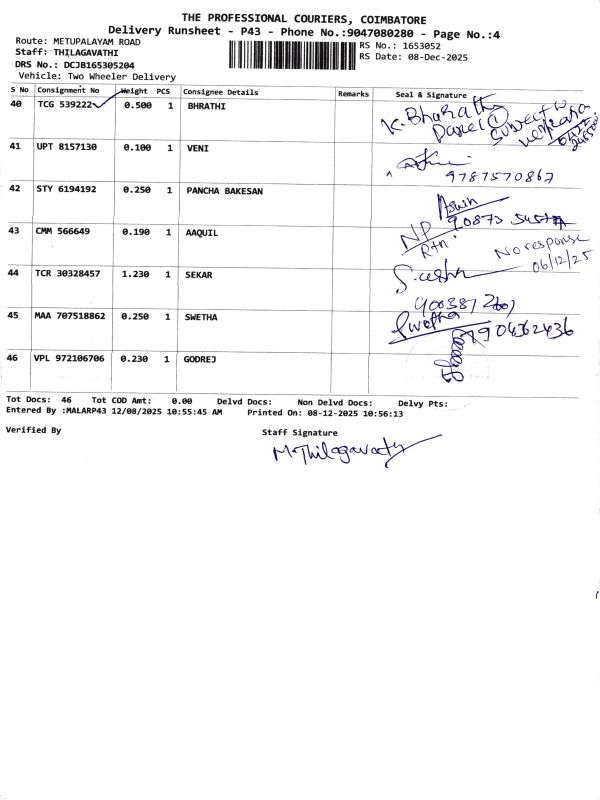 THE PROFESSIONAL COURIERS, COIMBATORE
Delivery Runsheet - P43 - Phone No.:9047080280 - Page No.:4
Route: METUPALAYAM ROAD
RS No.: 1653052
Staff: THILAGAVATHI
RS Date: 08-Dec-2025
DRS No.: DCJB165305204
Vehicle: Two Wheeler Delivery
S No Consignment No Weight PCS Consignee Details Remarks Seal & Signature
40 TCG 539222 0.500 1 BHRATHI K. Bharathi
Subject to
41 UPT 8157130 0.100 1 VENI
9787570867
42 STY 6194192 0.250 1 PANCHA BAKESAN Aswin
43 CMM 566649 0.190 1 AAQUIL NP
Rtn
No response
06/12/25
44 TCR 30328457 1.230 1 SEKAR
45 MAA 707518862 0.250 1 SWETHA Swetha
46 VPL 972106706 0.230 1 GODREJ
Tot Docs: 46 Tot COD Amt: 0.00 Delvd Docs: Non Delvd Docs: Delvy Pts:
Entered By :MALARP43 12/08/2025 10:55:45 AM Printed On: 08-12-2025 10:56:13
Verified By Staff Signature
M.Thilagavathy